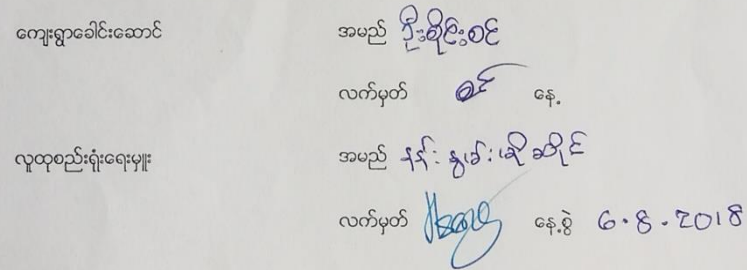 ကျေးရွာခေါင်းဆောင် အမည် ဦးစိုင်းစင်
လက်မှတ် စင် နေ့
လူထုစည်းရုံးရေးမှူး အမည် နန်း နွမ်း ဆိုင်
လက်မှတ် နေ့စွဲ 6.8.2018